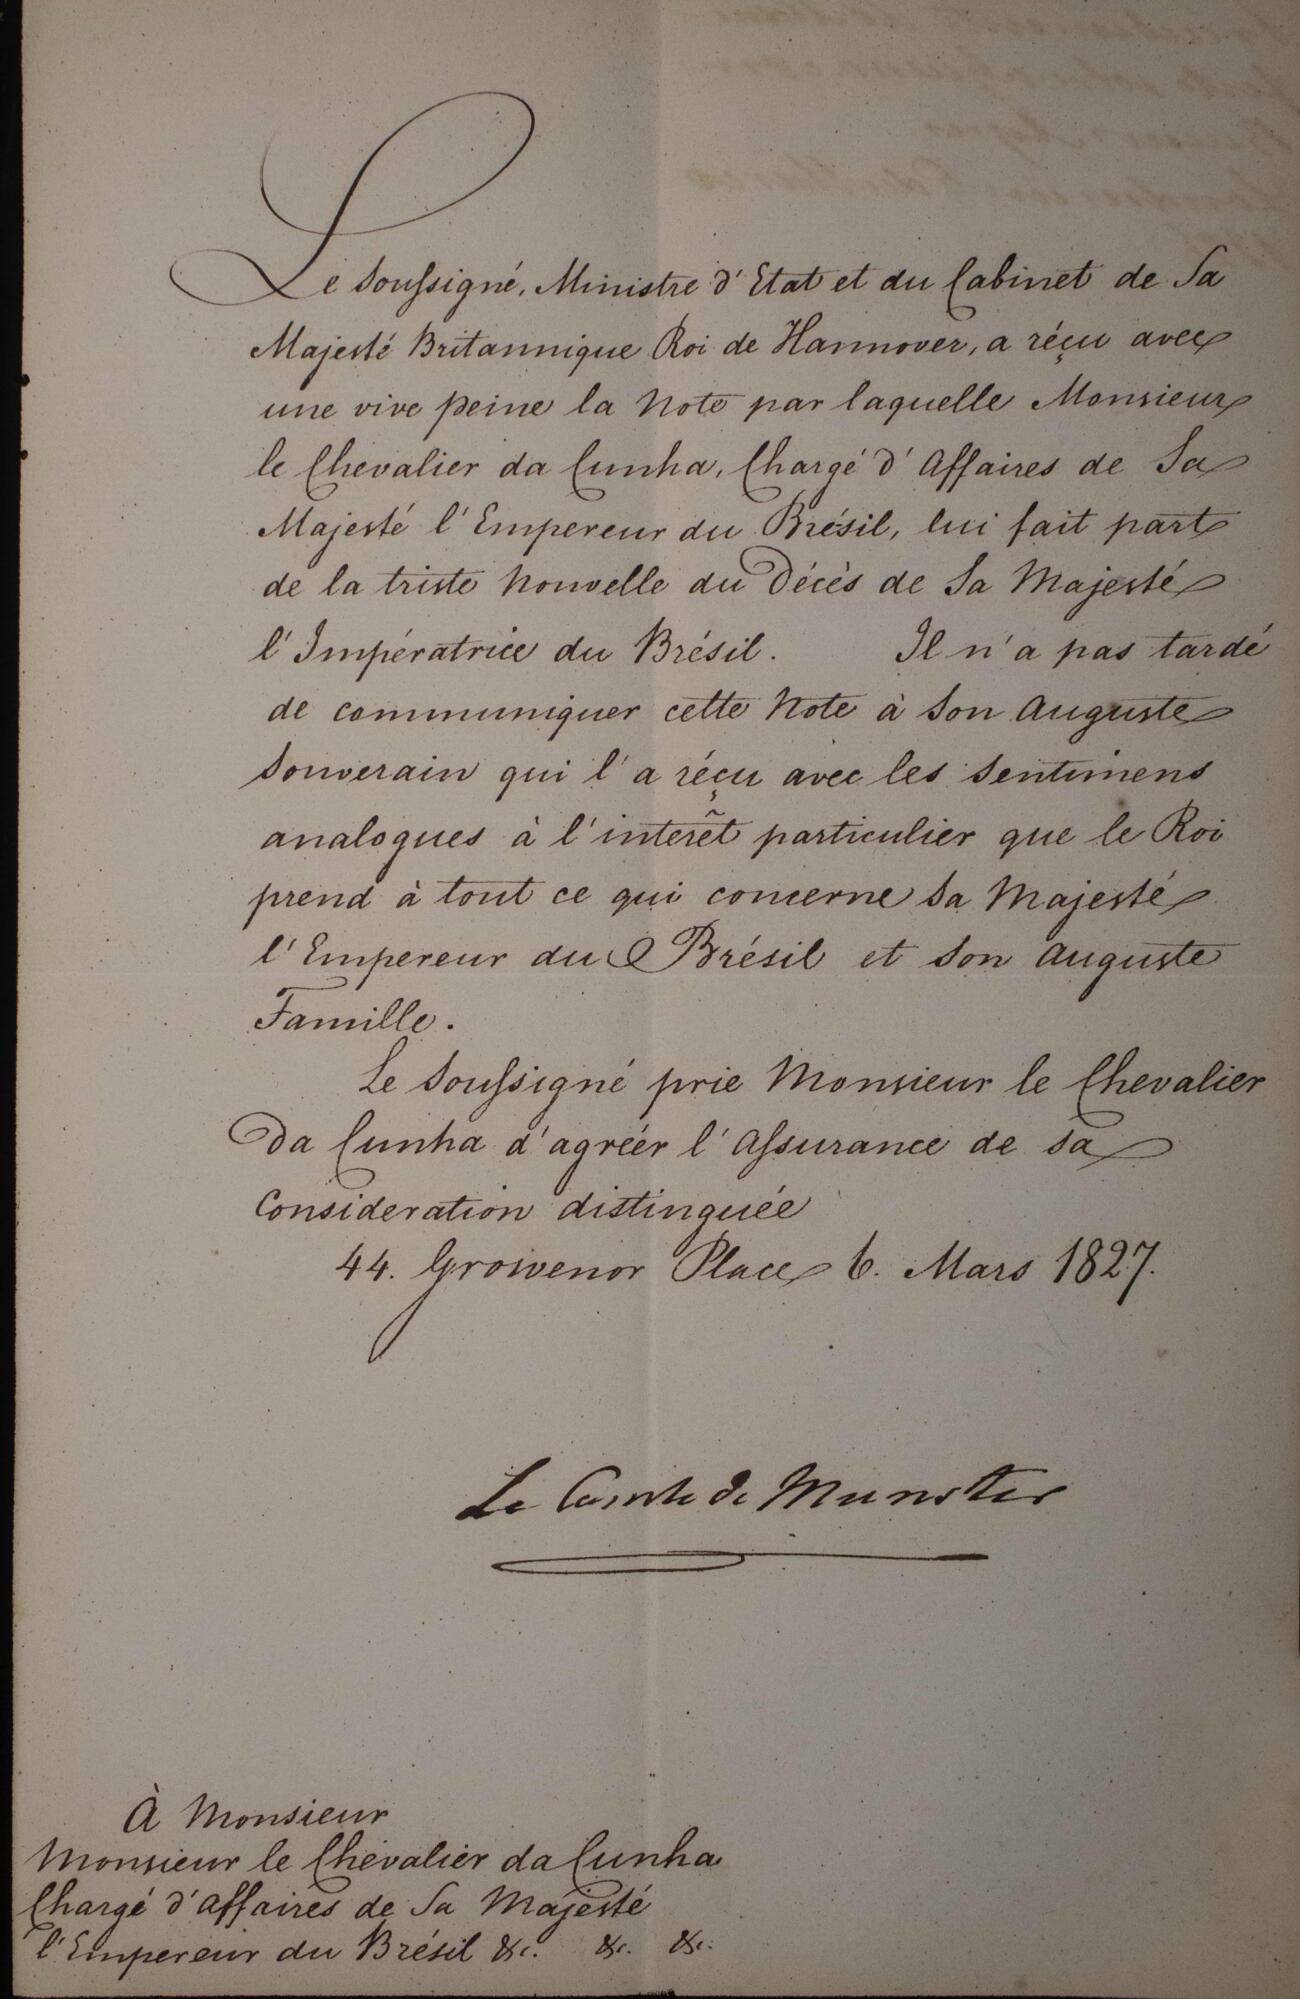 Le Soussigné, Ministre d'Etat et du Cabinet de Sa
Majesté Britannique Roi de Hannover, a réçu avec
une vive peine la Note par laquelle Monsieur
le Chevalier da Cunha, Chargé d'Affaires de Sa
Majesté l'Empereur du Brésil, lui fait part
de la triste Nouvelle du Décès de Sa Majesté
l'Impératrice du Brésil. Il n'a pas tardé
de communiquer cette Note à Son Auguste
Souverain qui l'a réçu avec les Sentimens
analogues à l'interêt particulier que le Roi
prend à tout ce qui concerne Sa Majesté
l'Empereur du Brésil et Son Auguste
Famille.
Le Soussigné prie Monsieur le Chevalier
Da Cunha d'agréér l'Assurance de sa
Consideration distinguée
44. Grosvenor Place 6. Mars 1827.
Le Comte de Munster
À Monsieur
Monsieur le Chevalier da Cunha
Chargé d'Affaires de Sa Majesté
l'Empereur du Brésil &c. &c. &c.